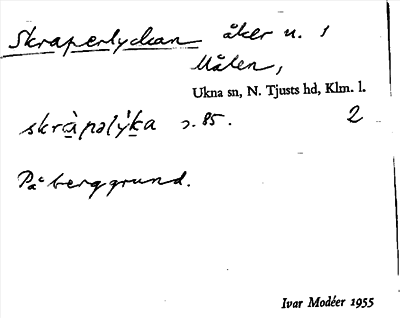 Skraperlyckan åker n. 1
Målen,
Ukna sn, N. Tjusts hd, Klm. l.
skrà̱pəlýḵa s. 85. 2
På berggrund.
Ivar Modéer 1955